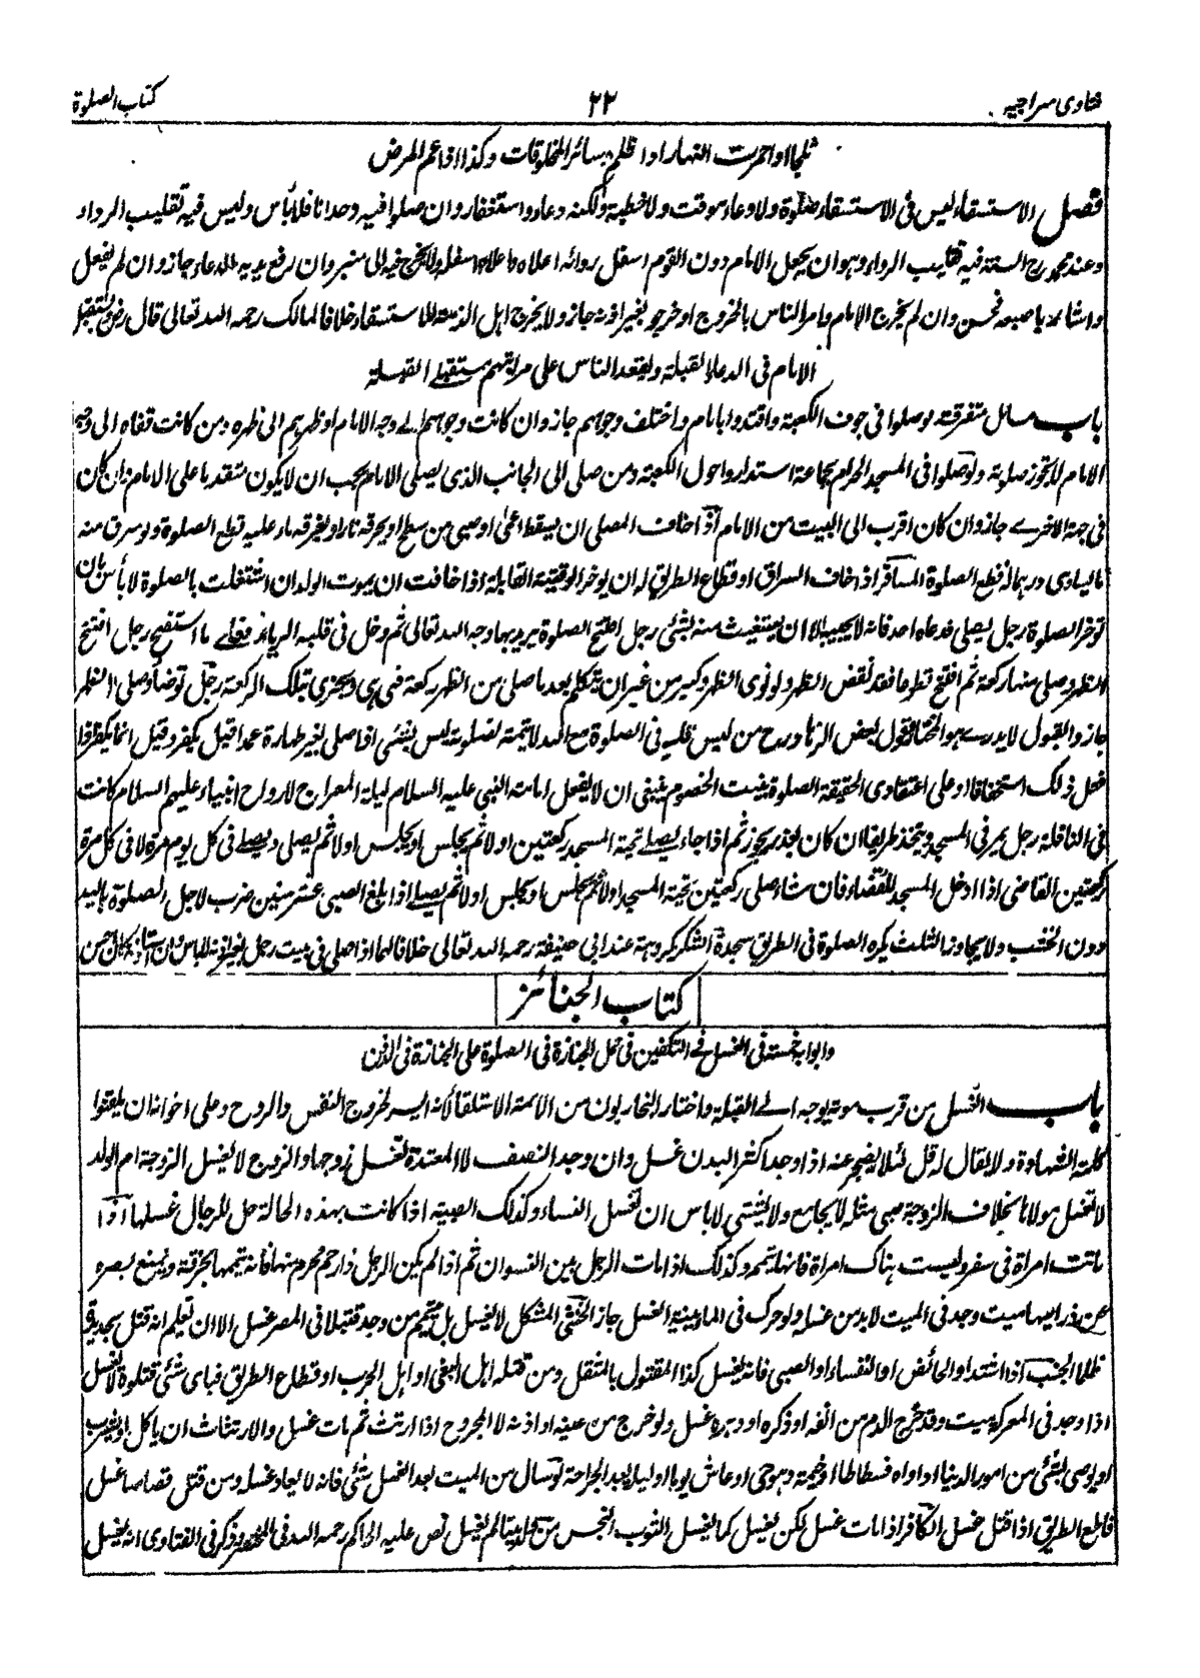 فتاوى سراجيه ٢٢ كتاب الصلوة
ثلجا او احمرت النهار او اظلم بسائر المخلوقات وكذا اذا عم المرض
فصل الاستسقاء ليس فى الاستسقاء صلوة ولا دعاء موقت ولا خطبة ولكنه دعاء واستغفار وان صلوا فيه وحدانا فلا بأس وليس فيه تقليب الرداء
وعند محمد رح السنة فيه تقليب الرداء وهو ان يجعل الامام دون القوم اسفل ردائه اعلاه واعلاه اسفله ولا يخرج فيه الى منبر وان رفع يديه للدعاء جاز وان لم يفعل
واشار باصبعه فحسن وان لم يخرج الامام وامر الناس بالخروج او خرجوا بغير اذنه جاز ولا يخرج اهل الذمة للاستسقاء خلافا لمالك رحمه الله تعالى قال رض يستقبل
الامام فى الدعاء القبلة ويقعد الناس على مراتبهم مستقبلے القبلة
باب مسائل متفرقة لو صلوا فى جوف الكعبة واقتدوا بامام واختلف وجوههم جاز وان كانت وجوههم الے وجه الامام او ظهرهم الى ظهره ومن كانت قفاه الى وجه
الامام لا تجوز صلوته ولو صلوا فى المسجد الحرام بجماعة استداروا حول الكعبة ومن صلى الى الجانب الذى يصلى الامام يجب ان لا يكون متقدما على الامام وان كان
فى جهة الاخرے جاز وان كان اقرب الى البيت من الامام اذا خاف المصلى ان يسقط اعمى او صبى من سطح او يحرقه نار او يغرقه ماء عليه قطع الصلوة ولو سرق منه
ما يساوى درهما له قطع الصلوة المسافر اذا خاف السراق او قطاع الطريق له ان يوخر الوقتية القابلة اذا خافت ان يموت الولد ان اشتغلت بالصلوة لا بأس بان
توخر الصلوة رجل يصلى فدعاه احد فانه لا يجيبه الا ان يستغيث منه بشئ رجل افتتح الصلوة يريد بها وجه الله تعالى ثم دخل فى قلبه الرياء فعلے ما استفتح رجل افتتح
الظهر وصلى منها ركعة ثم افتتح تطوعا فقد نقض الظهر ولو نوى الظهر وكبر من غير ان يتكلم بعد ما صلى من الظهر ركعة فهى هى ويجتزى بتلك الركعة رجل توضأ وصلى الظهر
جاز والقبول لا يدرے هو المختار قول بعض الزهاد رح من ليس قلبه فى الصلوة مع الله لا قيمة لصلوته ليس بشئ اذا صلى بغير طهارة عمدا قيل يكفر وقيل انما يكفر اذا
فعل ذلك استخفافا او على اعتقادى الحقيقة الصلوة بنيت الخصوم ينبغى ان لا يفعل امامة النبى عليه السلام ليلة المعراج لارواح انبياء عليهم السلام كانت
فى النافلة رجل يمر فى المسجد ويتخذ طريقا ان كان بعذر يجوز ثم اذا جاء يصلے تحية المسجد ركعتين اولا ثم يجلس او يجلس اولا ثم يصلى ويصلے فى كل يوم مرة لا فى كل مرة
ركعتين القاضى اذا ادخل المسجد للقضاء فان شاء صلى ركعتين تحية المسجد اولا ثم يجلس او يجلس اولا ثم يصلے اذا بلغ الصبى عشر سنين ضرب لاجل الصلوة باليد
دون الخشب ولا يجاوز الثلث يكره الصلوة فى الطريق سجدة الشكر مكروهة عند ابى حنيفة رحمه الله تعالى خلافا لهما اذا صلى فى بيت رجل بغير اذنه لا بأس وان استأذنه كان احسن
كتاب الجنائز
وابوابه خمسة فى الغسل فے التكفين فى حمل الجنازة فى الصلوة على الجنازة فى الدفن
باب الغسل من قرب موته يوجه الے القبلة واختار البخاريون من الائمة الاستلقاء لانه ايسر لخروج النفس والروح وعلى اخوانه ان يلقنوا
كلمة الشهادة ولا يقال له قل لئلا يضجر عنه اذا وجد اكثر البدن غسل وان وجد النصف لا المعتدة تغسل زوجها والزوج لا يغسل الزوجة ام الولد
لا تغسل مولاها بخلاف الزوجة صبى مثله لا يجامع ولا يشتهى لا باس ان تغسل النساء وكذلك الصبية اذا كانت بهذه الحالة حل للرجال غسلها اذا
ماتت امراة فى سفر وليست هناك امراة فانها تيمم وكذلك اذا مات الرجل بين النسوان ثم اذا لم يكن الرجل ذا رحم محرم منها فانه ييممها بخرقة ويمنع بصره
عن ذراعيها ميت وجد فى الميت لا بد من غسله ولو حرك فى الماء بنية الغسل جاز الخنثى المشكل لا يغسل بل ييمم من وجد قتيلا فى المصر غسل الا ان تعلم انه قتل بحديدة
ظلما الجنب اذا استشهد او الحائض او النفساء او الصبى فانه يغسل كذا المقتول بالمثقل ومن قتله اهل البغى او اهل الحرب او قطاع الطريق فباى شئ قتلوه لا يغسل
اذا وجد فى المعركة ميت وقد خرج الدم من انفه او ذكره او دبره غسل ولو خرج من عينه او اذنه لا المجروح اذا ارتث ثم مات غسل والارتثاث ان ياكل او يشرب
او يوصى بشئ من امور الدنيا او اواه فسطاطا او خيمة وهو حى او عاش يوما او ليلة بعد الجراحة لو سال من الميت بعد الغسل شئ فانه لا يعاد غسله ومن قتل قصاصا غسل
قاطع الطريق اذا قتل غسل الكافر اذا مات غسل لكن يغسل كما يغسل الثوب النجس من لم يغسل نص عليه الحاكم رحمه الله فى المختصر وذكر فى الفتاوى انه يغسل